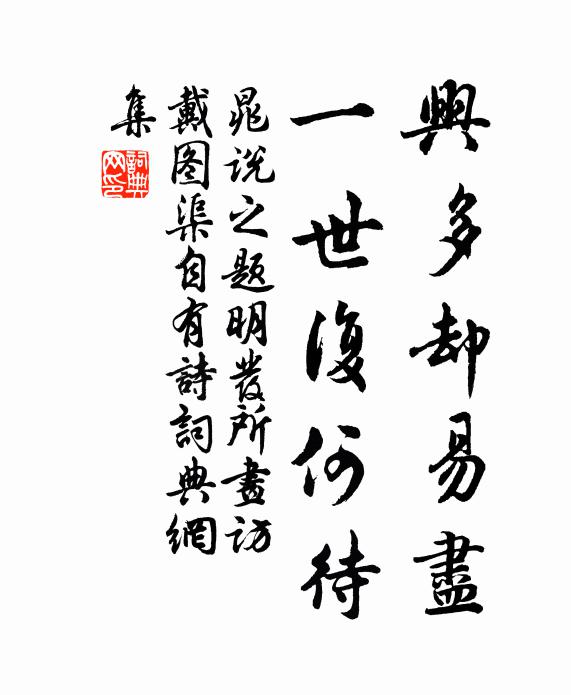 興多却易盡
一世復何待
晁说之题明發所畫访
戴图渠自有詩詞典網
集
詞典網印